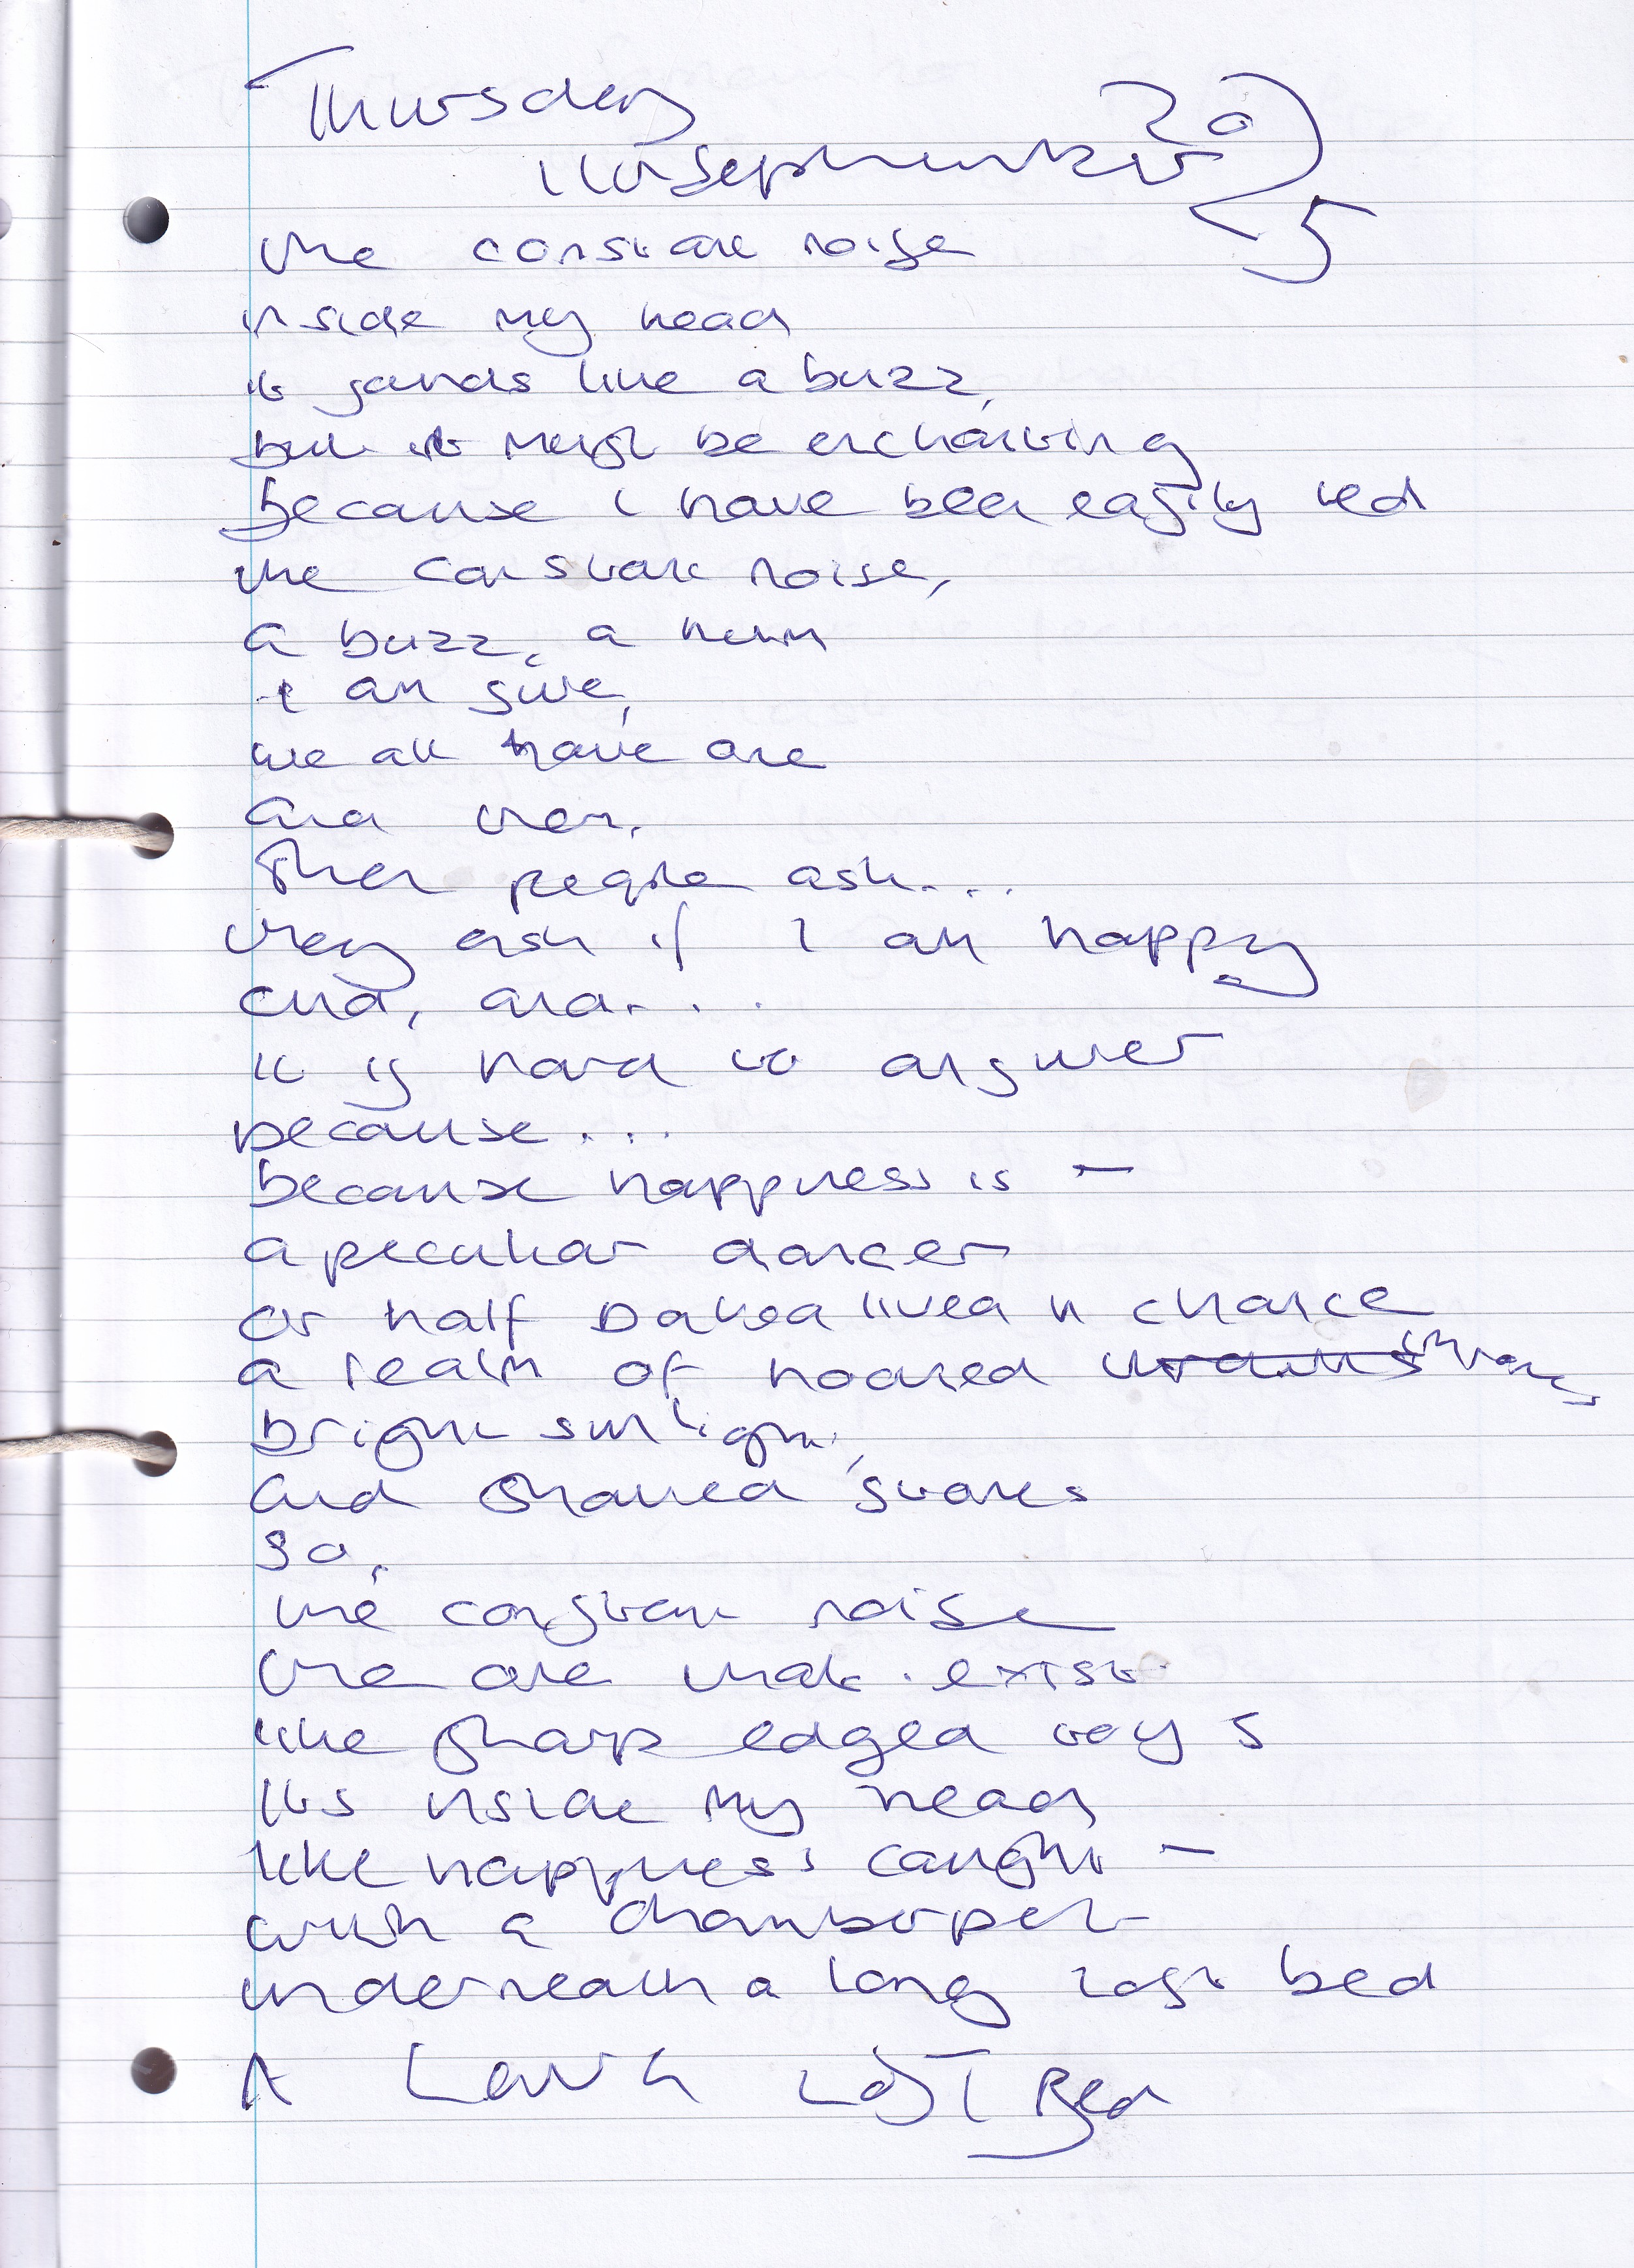 Thursday 20
11th September 25
the constant noise
inside my head
it sounds like a buzz,
but it must be enchanting
because i have been easily led
the constant noise,
a buzz, a hum
I am sure,
we all have one
and then.
Then people ask...
they ask if I am happy
and, and...
it is hard to answer
because...
because happiness is -
a peculiar dancer
or half baked lived in chance
a realm of hoared things
bright sunlight,
and shared stones
so,
the constant noise
the one that exist
like sharp edged toys
its inside my head
like happiness caught -
with a chamberpot
underneath a long lost bed
A Long LOST Bed